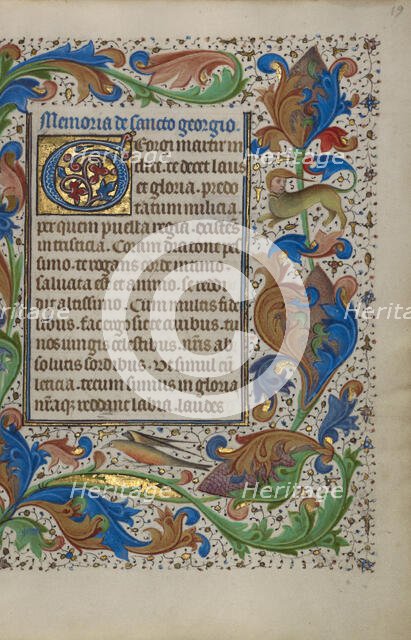 19
Memoria de sancto georgio.
Georgi martir in
clite te decet laus
et gloria. predo
tatum milicia
per quem puella regia. existes
in tristicia. Coram dracone pes
simo. te rogans corde intimo
saluata est et animo. te
altissimo. Cum multis fide
libus. fac ergo
nos iungi celestibus. nris ab
soluti sordibus. Ut simul cū
leticia. tecum simus in gloria
nraq3 reddant labia. laudes
©
Heritage
Heritage
Heritage
Heritage
Heritage
Heritage